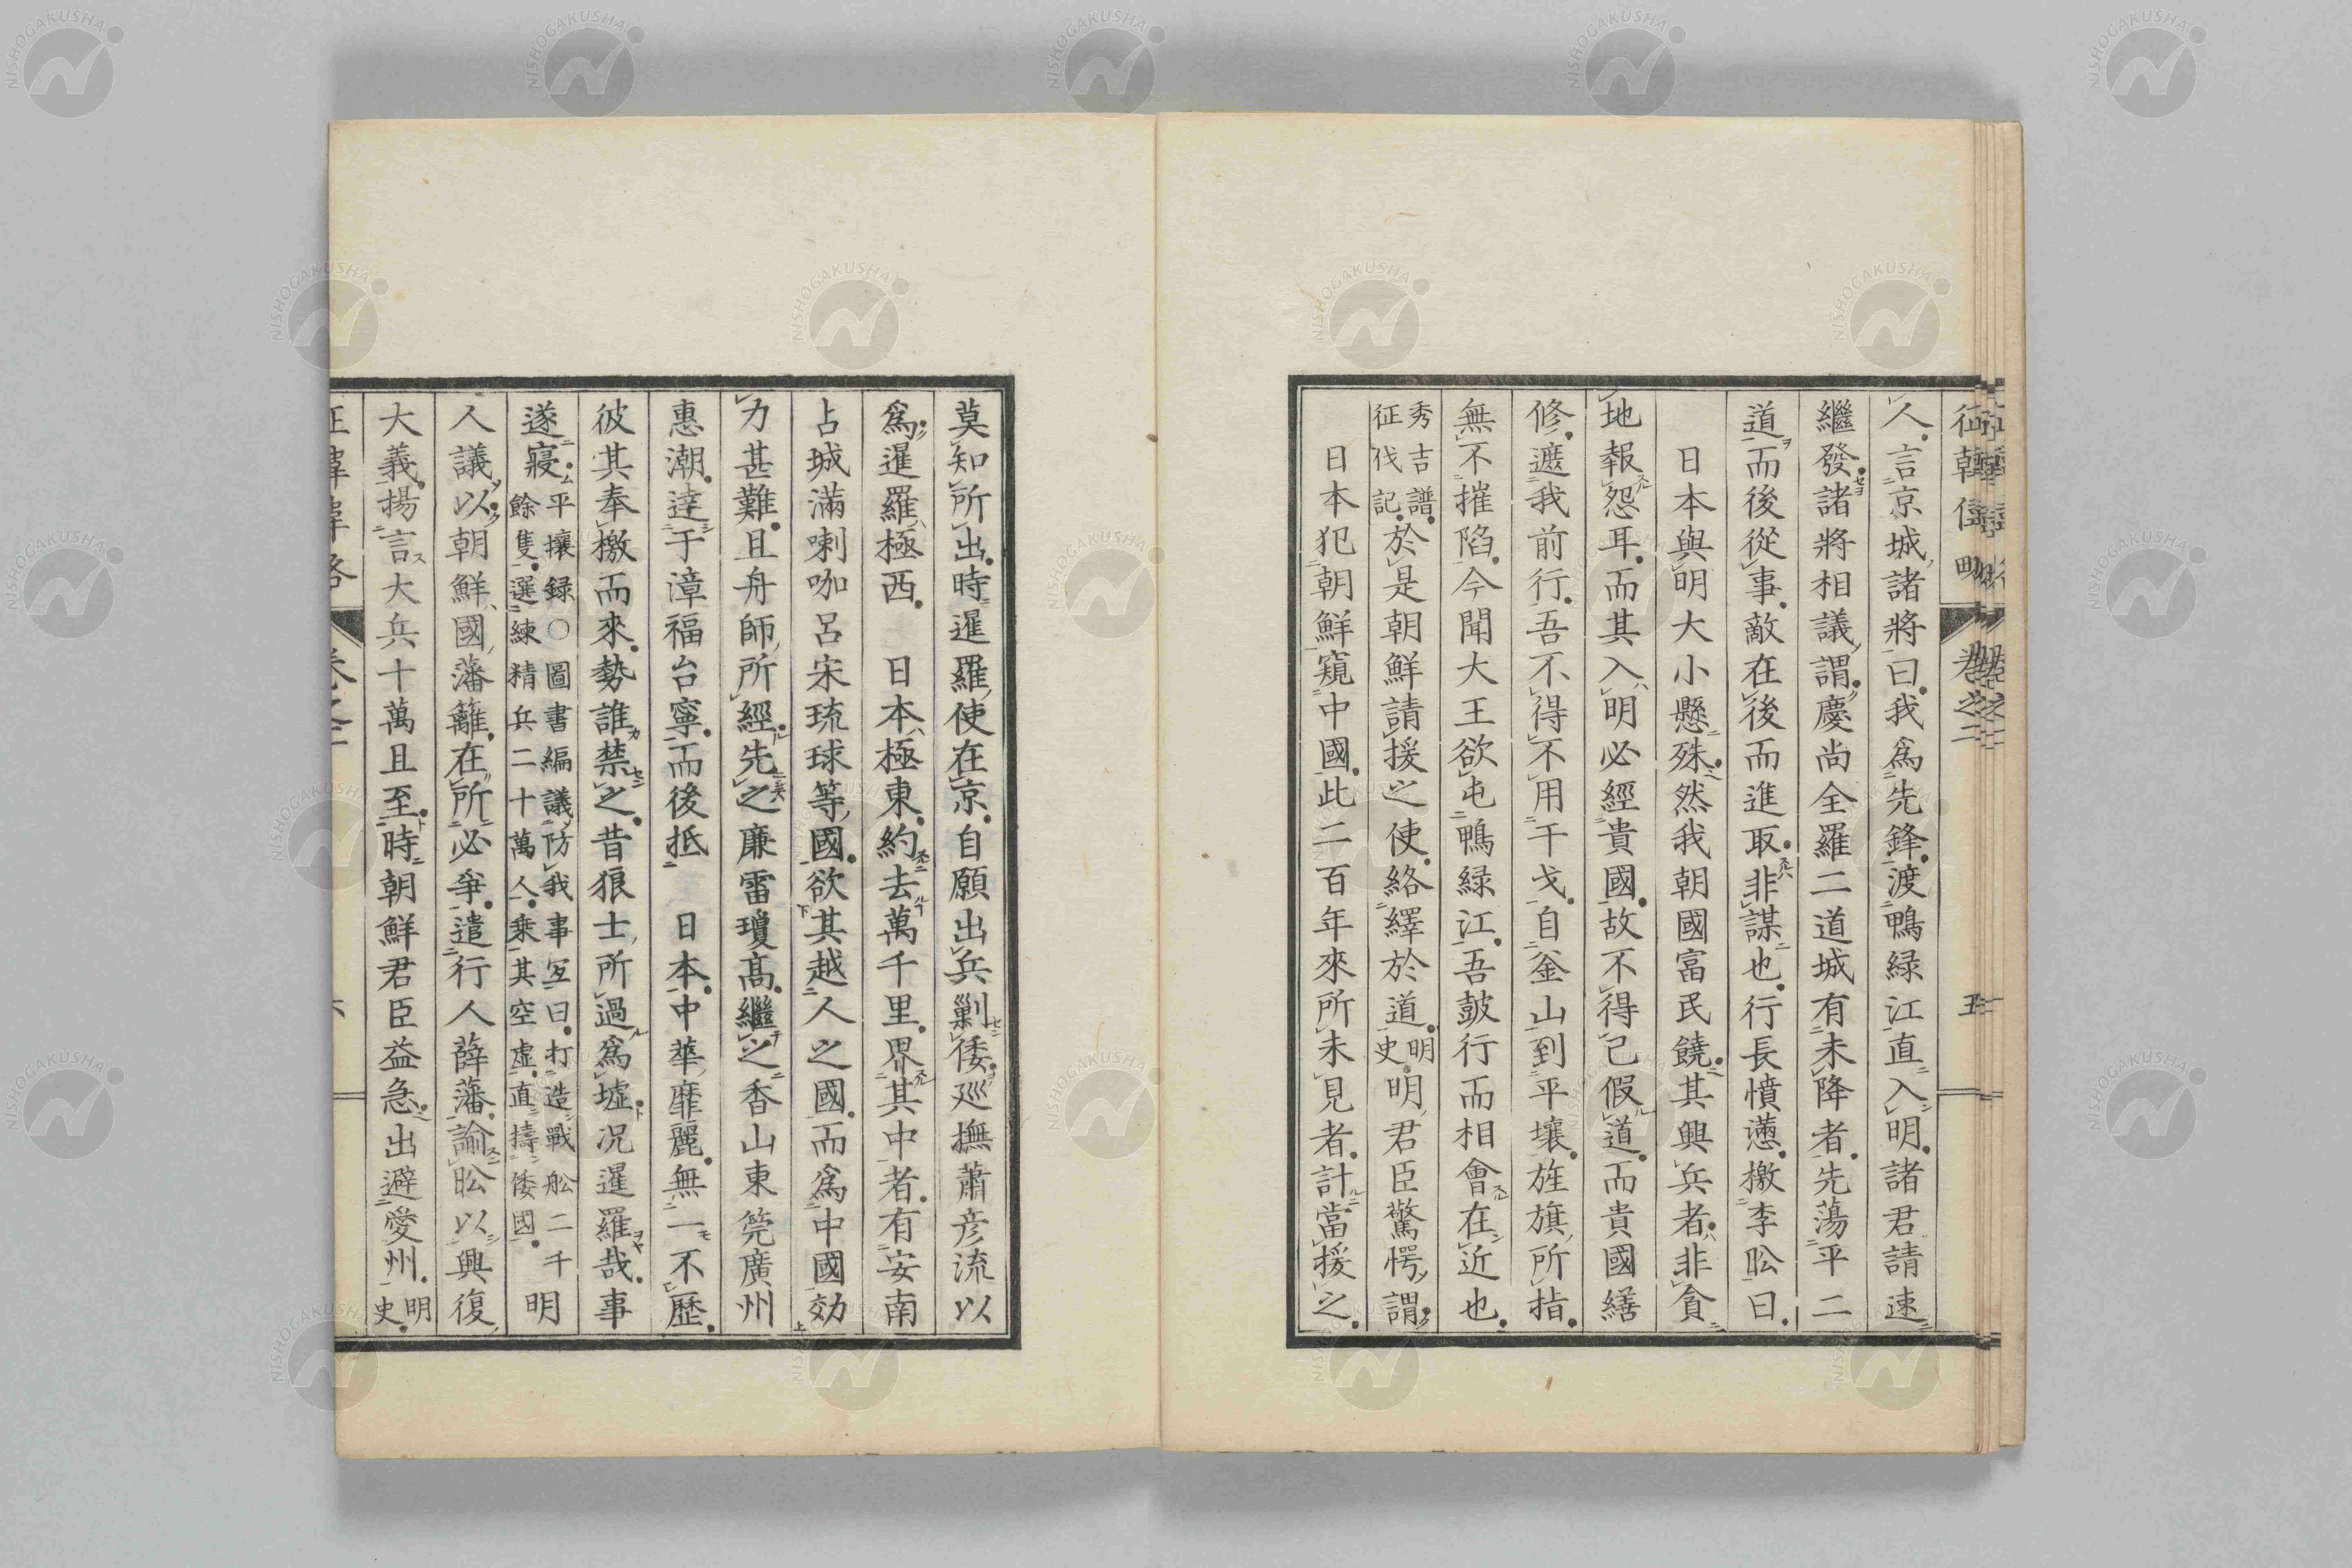 征韓偉略 卷之二 五
人言京城諸將曰我爲先鋒渡鴨緑江直入明諸君請速
繼發諸將相議謂慶尚全羅二道城有未降者先蕩平二
道而後從事敵在後而進取非謀也行長憤懣檄李昖曰
日本與明大小懸殊然我朝國富民饒其興兵者非貪
地報怨耳而其入明必經貴國故不得已假道而貴國繕
修遮我前行吾不得不用干戈自釜山到平壤旌旗所指
無不摧陷今聞大王欲屯鴨緑江吾鼓行而相會在近也
秀吉譜
征伐記
於是朝鮮請援之使絡繹於道
明
史
明君臣驚愕謂
日本犯朝鮮窺中國此二百年來所未見者計當援之
莫知所出時暹羅使在京自願出兵剿倭巡撫蕭彦流以
爲暹羅極西 日本極東約去萬千里界其中者有安南
占城滿喇咖呂宋琉球等國欲其越人之國而爲中國効
力甚難且舟師所經先之廉雷瓊髙繼之香山東筦廣州
惠潮達于漳福台寧而後抵 日本中華靡麗無一不歴
彼其奉檄而來勢誰禁之昔狼士所過爲墟况暹羅哉事
遂寢
平壤録〇圖書編議防我事宐曰打造戰舩二千
餘隻選練精兵二十萬人乘其空虚直擣倭國
明
人議以朝鮮國藩籬在所必爭遣行人薛藩諭昖以興復
大義揚言大兵十萬且至時朝鮮君臣益急出避愛州
明
史